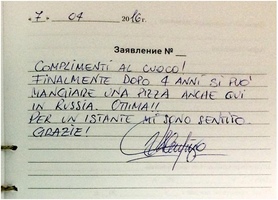 «7» 04 2016 г.
Заявление №
COMPLIMENTI AL CUOCO!
FINALMENTE DOPO 4 ANNI SI PUO'
MANGIARE UNA PIZZA ANCHE QUI
IN RUSSIA. OTTIMA!!
PER UN ISTANTE MI SONO SENTITO.
GRAZIE!